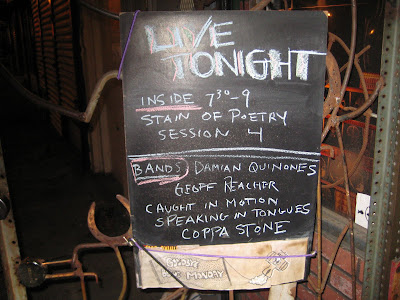 LIVE
TONIGHT
INSIDE 7³⁰-9
STAIN OF POETRY
SESSION 4
BANDS DAMIAN QUINONES
GEOFF REACHER
CAUGHT IN MOTION
SPEAKING IN TONGUES
COPPA STONE
MONDAY